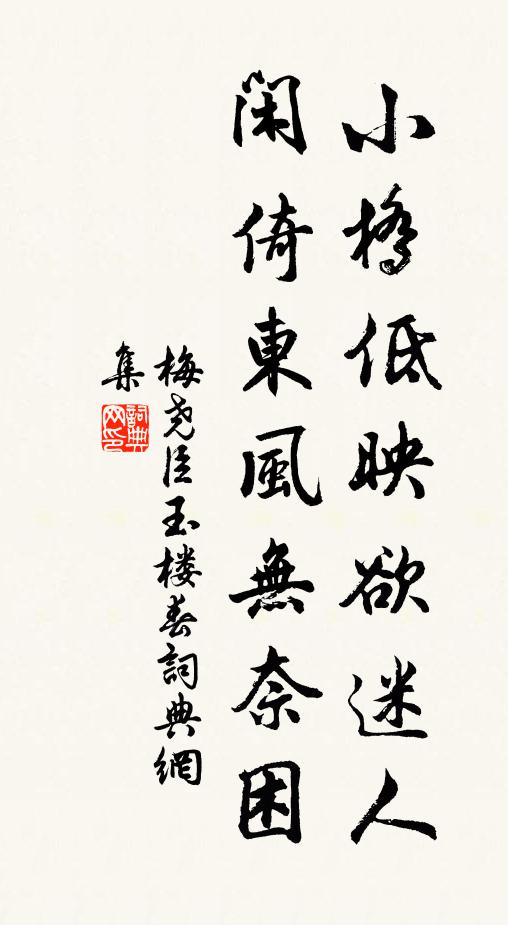 小橋低映欲迷人
闲倚東風無奈困
梅尧臣玉楼春詞典網
集
詞典网印